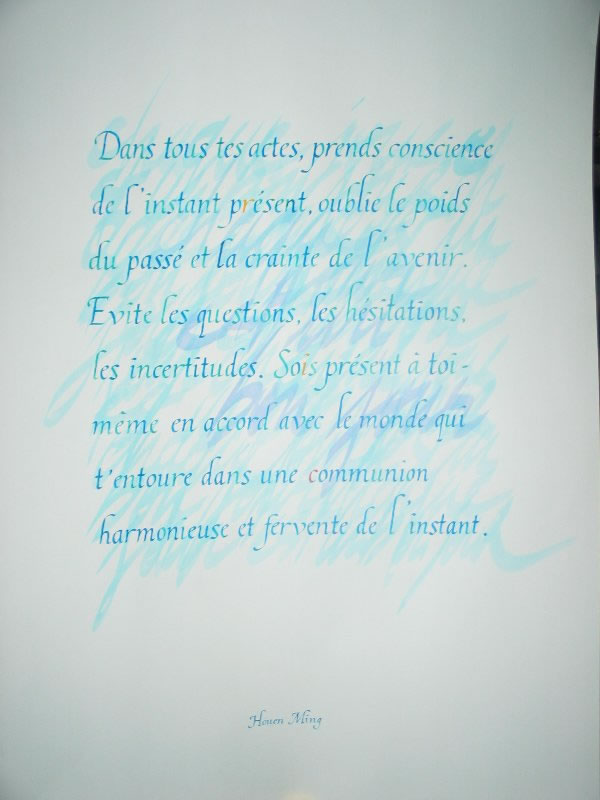 Dans tous tes actes, prends conscience
de l'instant présent, oublie le poids
du passé et la crainte de l'avenir.
Evite les questions, les hésitations,
les incertitudes. Sois présent à toi-
même en accord avec le monde qui
t'entoure dans une communion
harmonieuse et fervente de l'instant.
Houen Ming